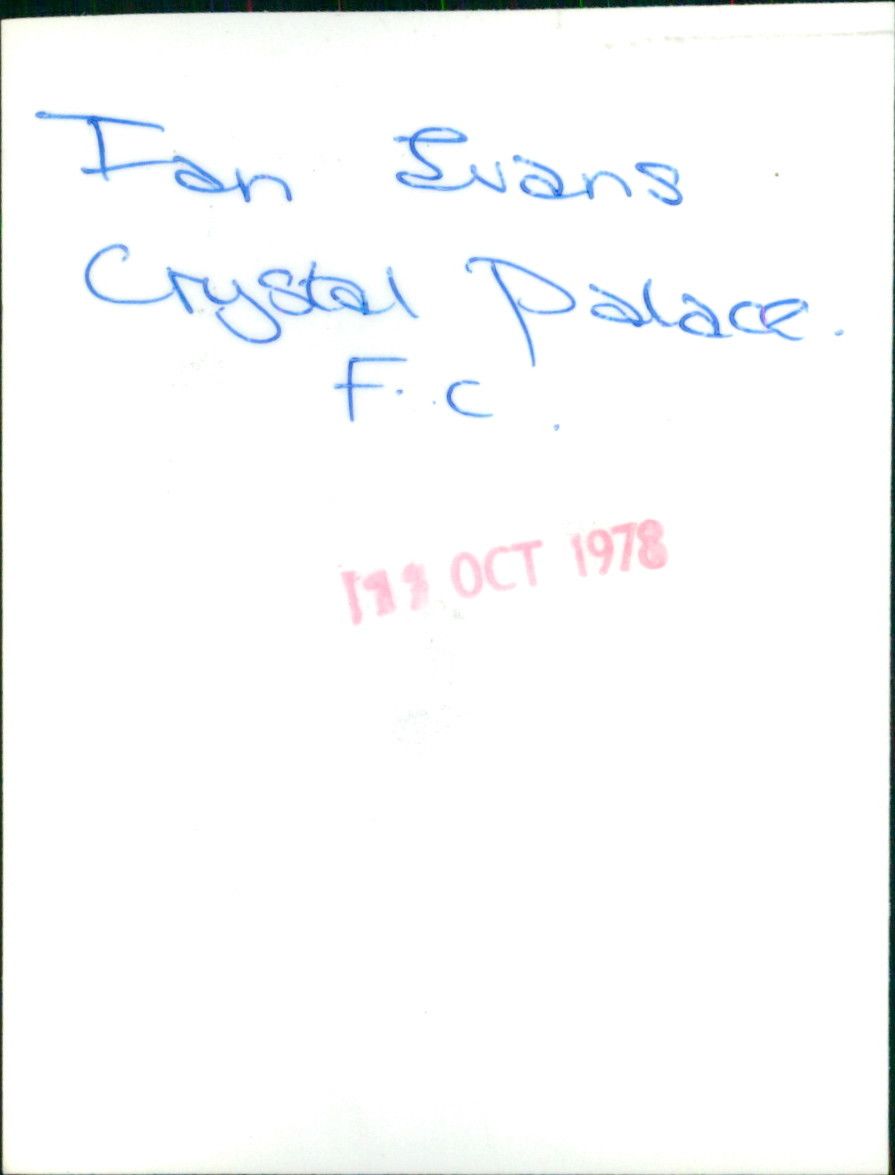 Ian Evans
Crystal Palace.
F.C.
OCT 1978